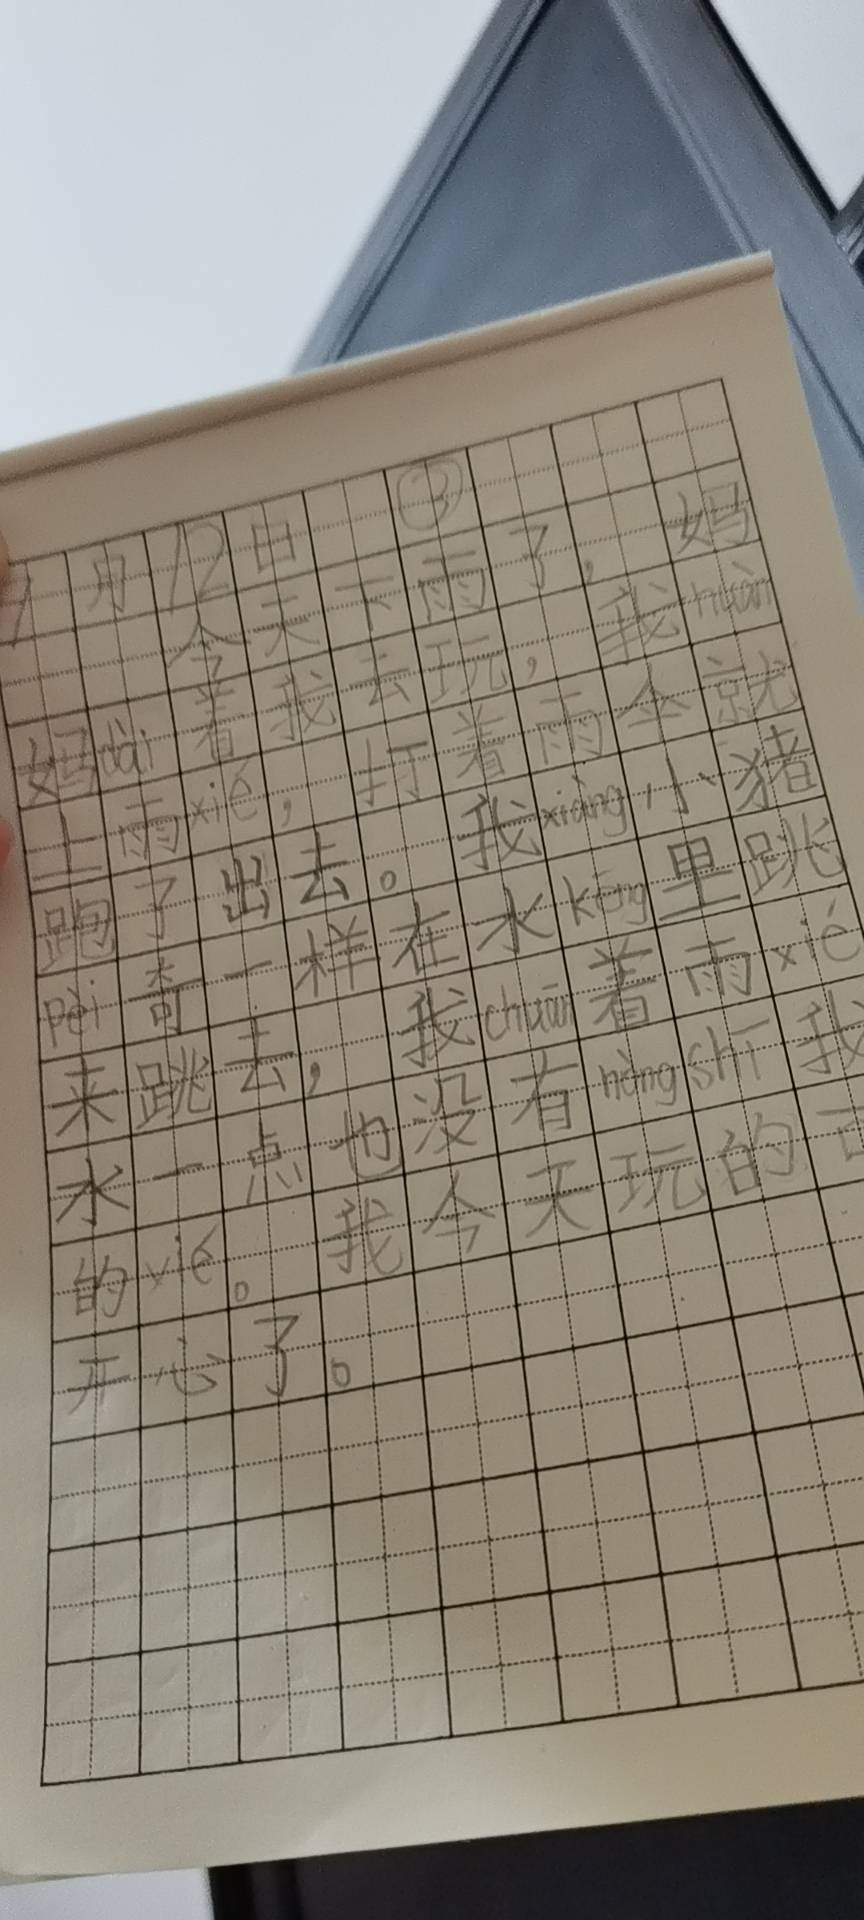 7月12日 ③
今天下雨了，妈
妈dài着我去玩，我huàn
上雨xié，打着雨伞就
跑了出去。我xiàng小猪
pèi奇一样在水kēng里跳
来跳去，我chuān着雨xié
水一点也没有nòng shī我
的xié。我今天玩的
开心了。